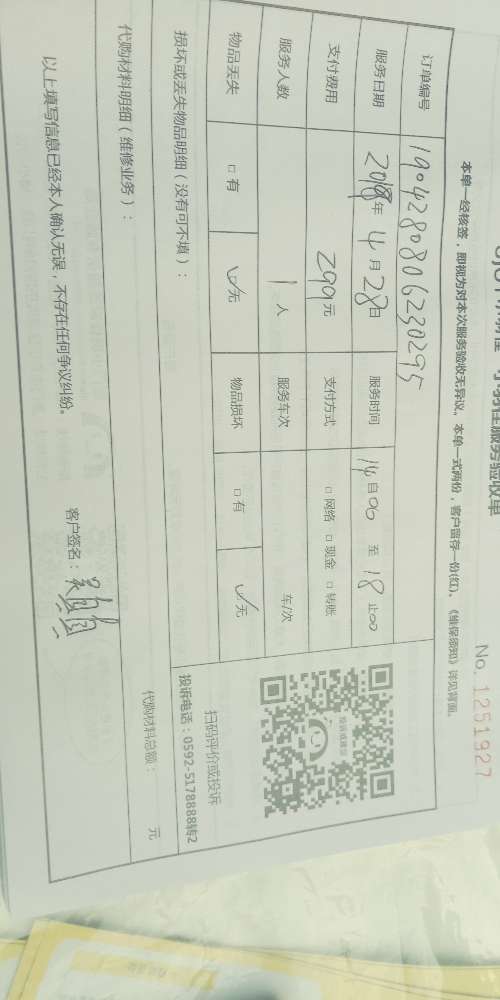 小易在服务验收单
No. 1251927
本单一经核签，即视为对本次服务验收无异议。本单一式两份，客户留存一份(红)。《维保须知》详见背面。
订单编号 1904280806230295
服务日期 2019年 4月28日 服务时间 14自00 至 18止00
支付费用 299元 支付方式 □网络 □现金 □转账
服务人数 1人 服务车次 车/次
物品丢失 □有 ✓无 物品损坏 □有 ✓无
投诉或建议
扫码评价或投诉
投诉电话：0592-5178888转2
损坏或丢失物品明细（没有可不填）：
代购材料明细（维修业务）：
代购材料总额： 元
以上填写信息已经本人确认无误，不存在任何争议纠纷。
客户签名：